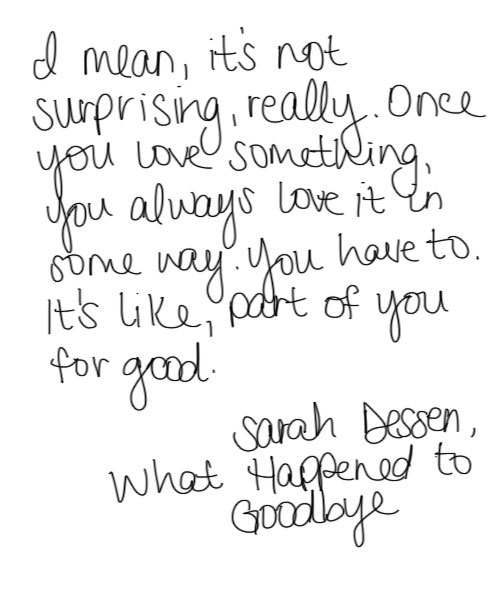 I mean, it's not
surprising, really. Once
you love something,
you always love it in
some way. You have to.
It's like, part of you
for good.
Sarah Dessen,
What Happened to
Goodbye